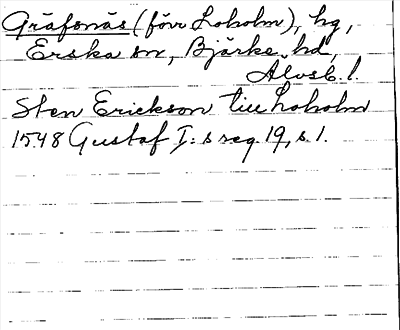 Gräfsnäs (förr Loholm), hg,
Erska sn, Bjärke hd,
Älvsb. l.
Sten Erickson till Loholm
1548 Gustaf I:s reg. 19, s. 1.